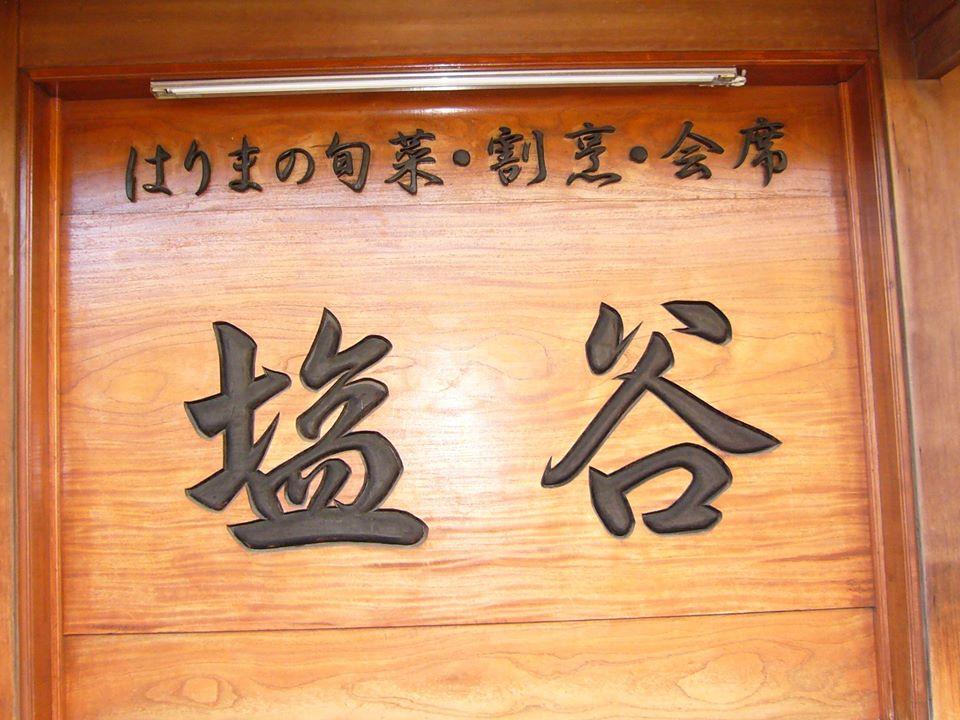 はりまの旬菜・割烹・会席
塩谷